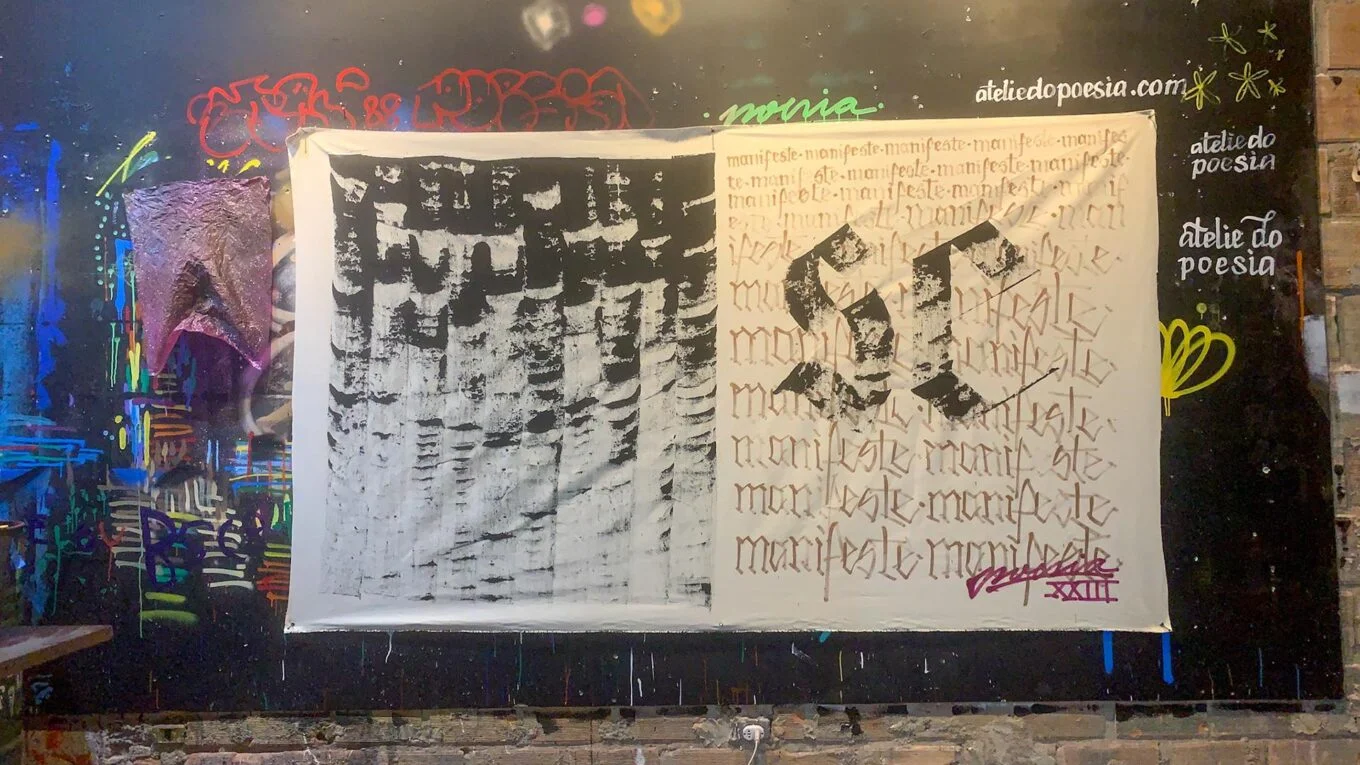 ateliedopoesia.com
poesia
atelie do
poesia
atelie do
poesia
manifeste·manifeste·manifeste·manifeste·manifes
te·manifeste·manifeste·manifeste·manifeste·
manifeste·manifeste·manifeste·manif
este·manifeste·manifeste·man
ifeste·manifeste·manifeste·
manifeste·manifeste·
manifeste·manifeste·
manifeste·manifeste·
manifeste·manifeste·
manifeste·manifeste
manifeste·manifeste
poesia
XXIII